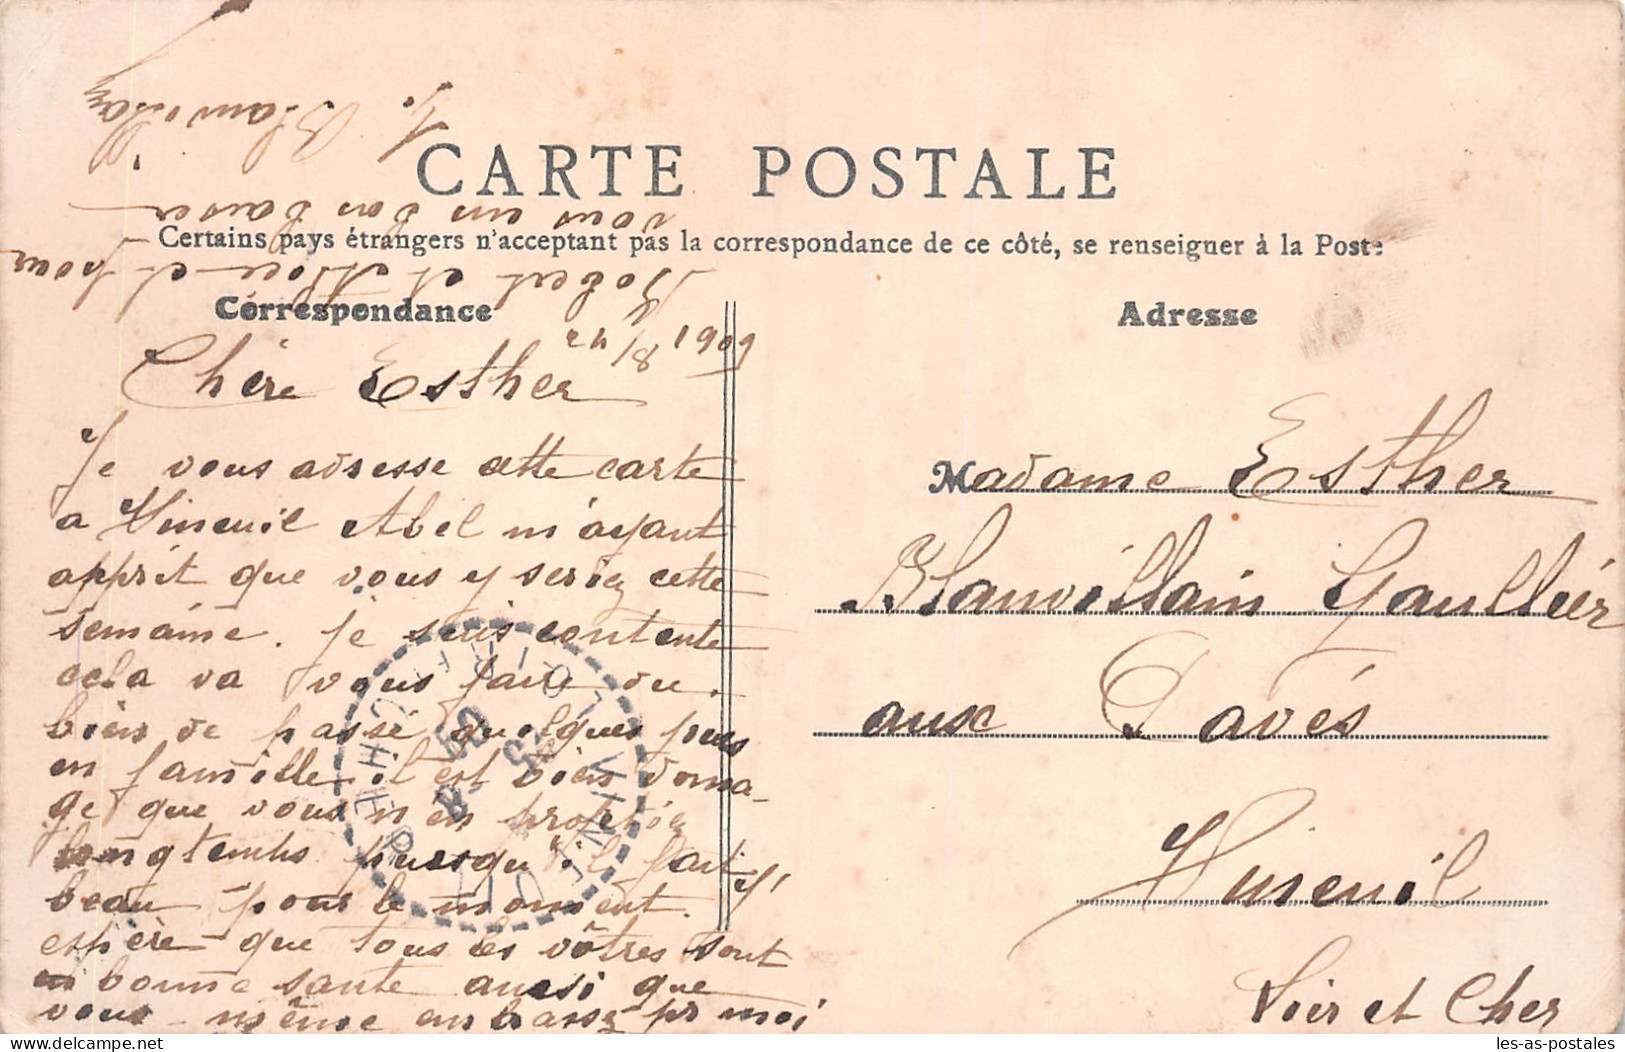 CARTE POSTALE
Certains pays étrangers n'acceptant pas la correspondance de ce côté, se renseigner à la Poste
Correspondance
Adresse
24/8 1909
Chère Esther
Je vous adresse cette carte
a Vineuil Abel m'ayant
apprit que vous y seriez cette
semaine. Je suis contente
cela va vous faire du
bien de passé quelques jours
en famille il est bien doma-
ge que vous n'en profitiez
longtemps puisqu'il fait
beau pour le moment. J'
espère que tous les vôtres sont
en bonne sante aussi que
vous même embrassez pr moi
Robert et Alice et pour
vous un bon baiser
Y. Blauvillain
Madame Esther
Blauvillain Gaullier
aux Davés
Vineuil
Loir et Cher
VINEUIL
LOIR-ET-CHER
les-as-postales